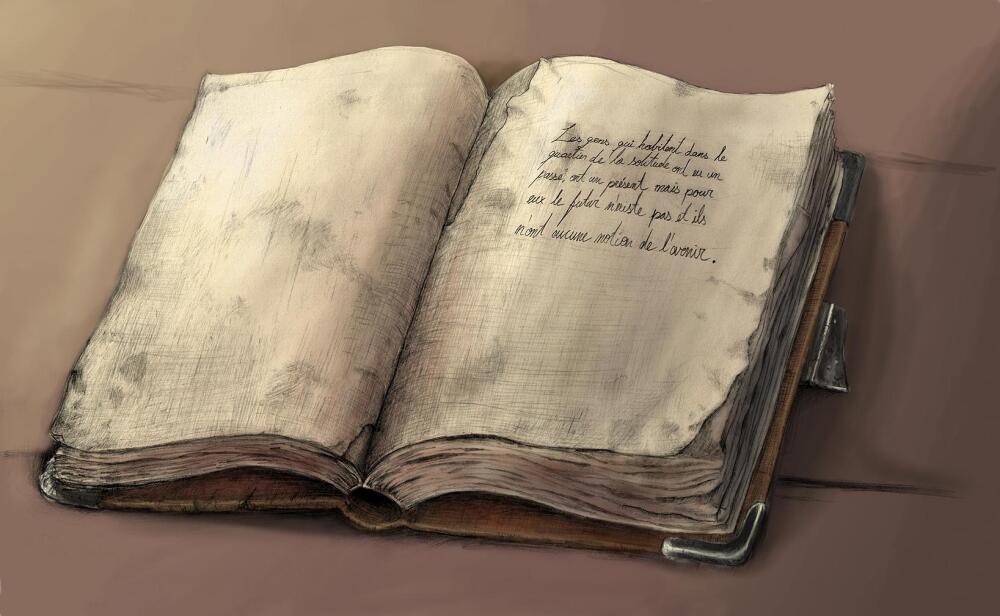 Les gens qui habitent dans le
quartier de la solitude ont eu un
passé, ont un présent mais pour
eux le futur n'existe pas et ils
n'ont aucune notion de l'avenir.